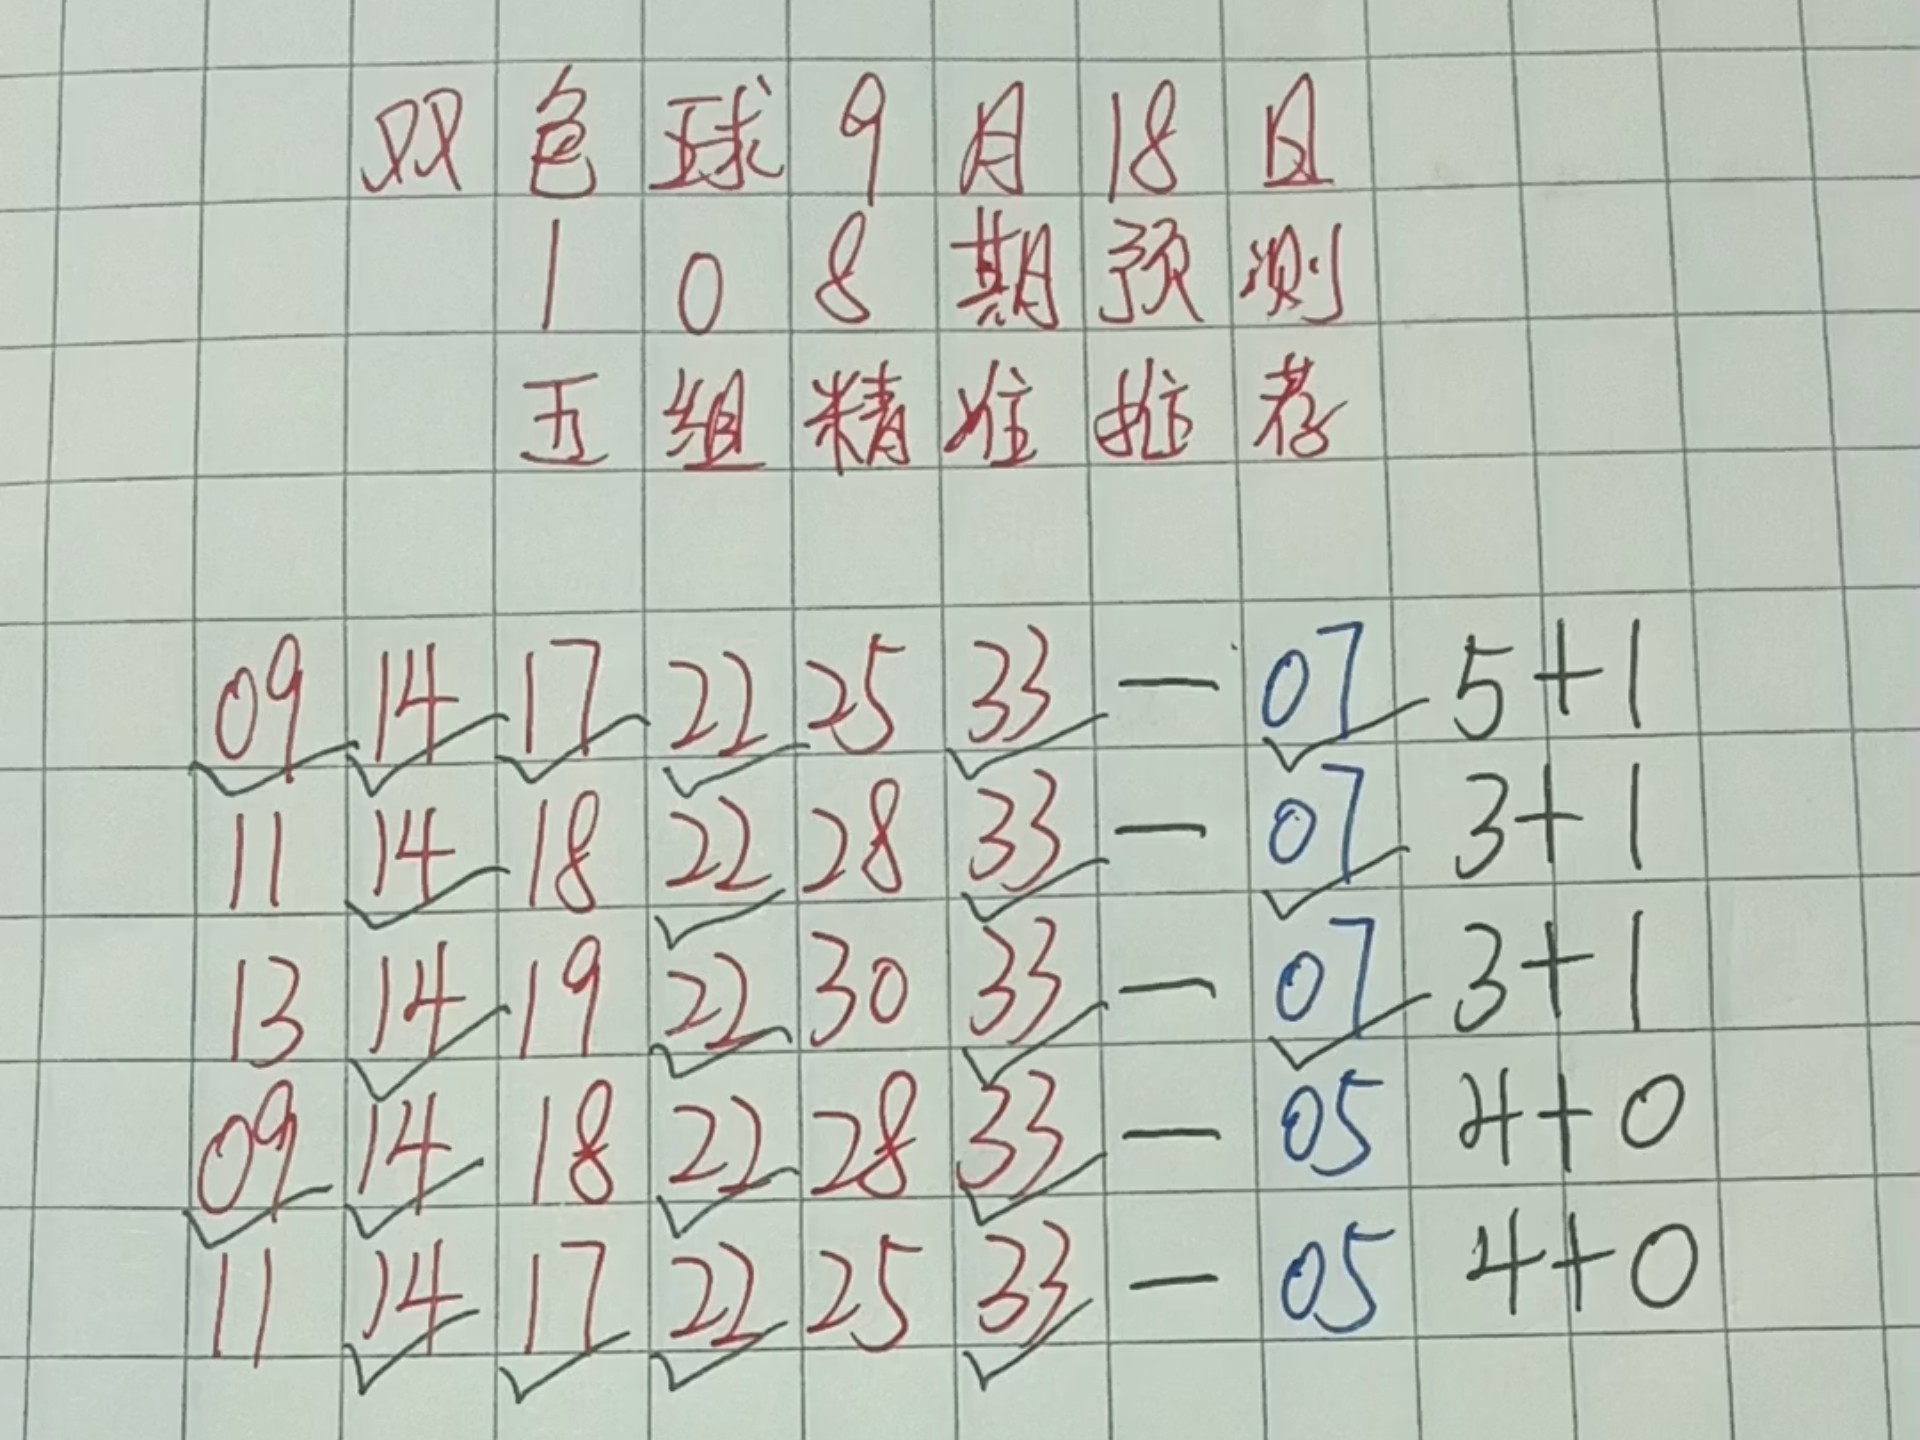 双色球9月18日
108期预测
五组精准推荐
09 14 17 22 25 33 — 07 5+1
11 14 18 22 28 33 — 07 3+1
13 14 19 22 30 33 — 07 3+1
09 14 18 22 28 33 — 05 4+0
11 14 17 22 25 33 — 05 4+0